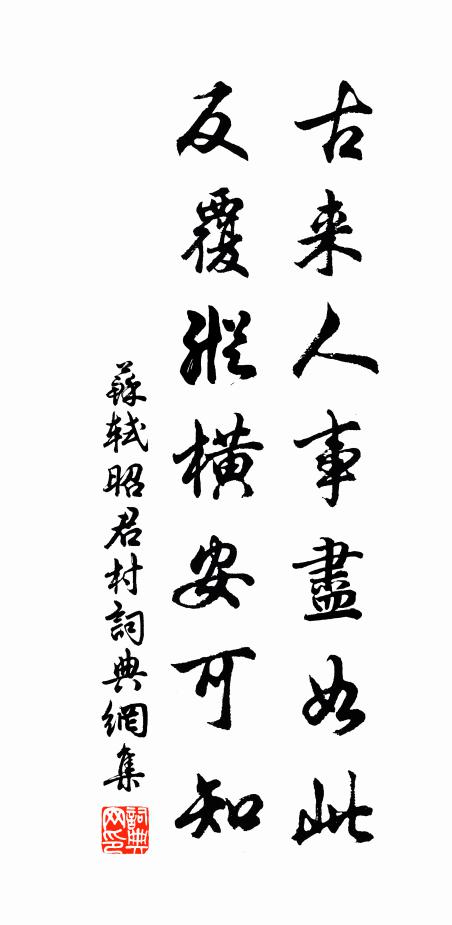 古来人事盡如此
反覆縱橫安可知
蘇軾昭君村詞典網集
詞典網印